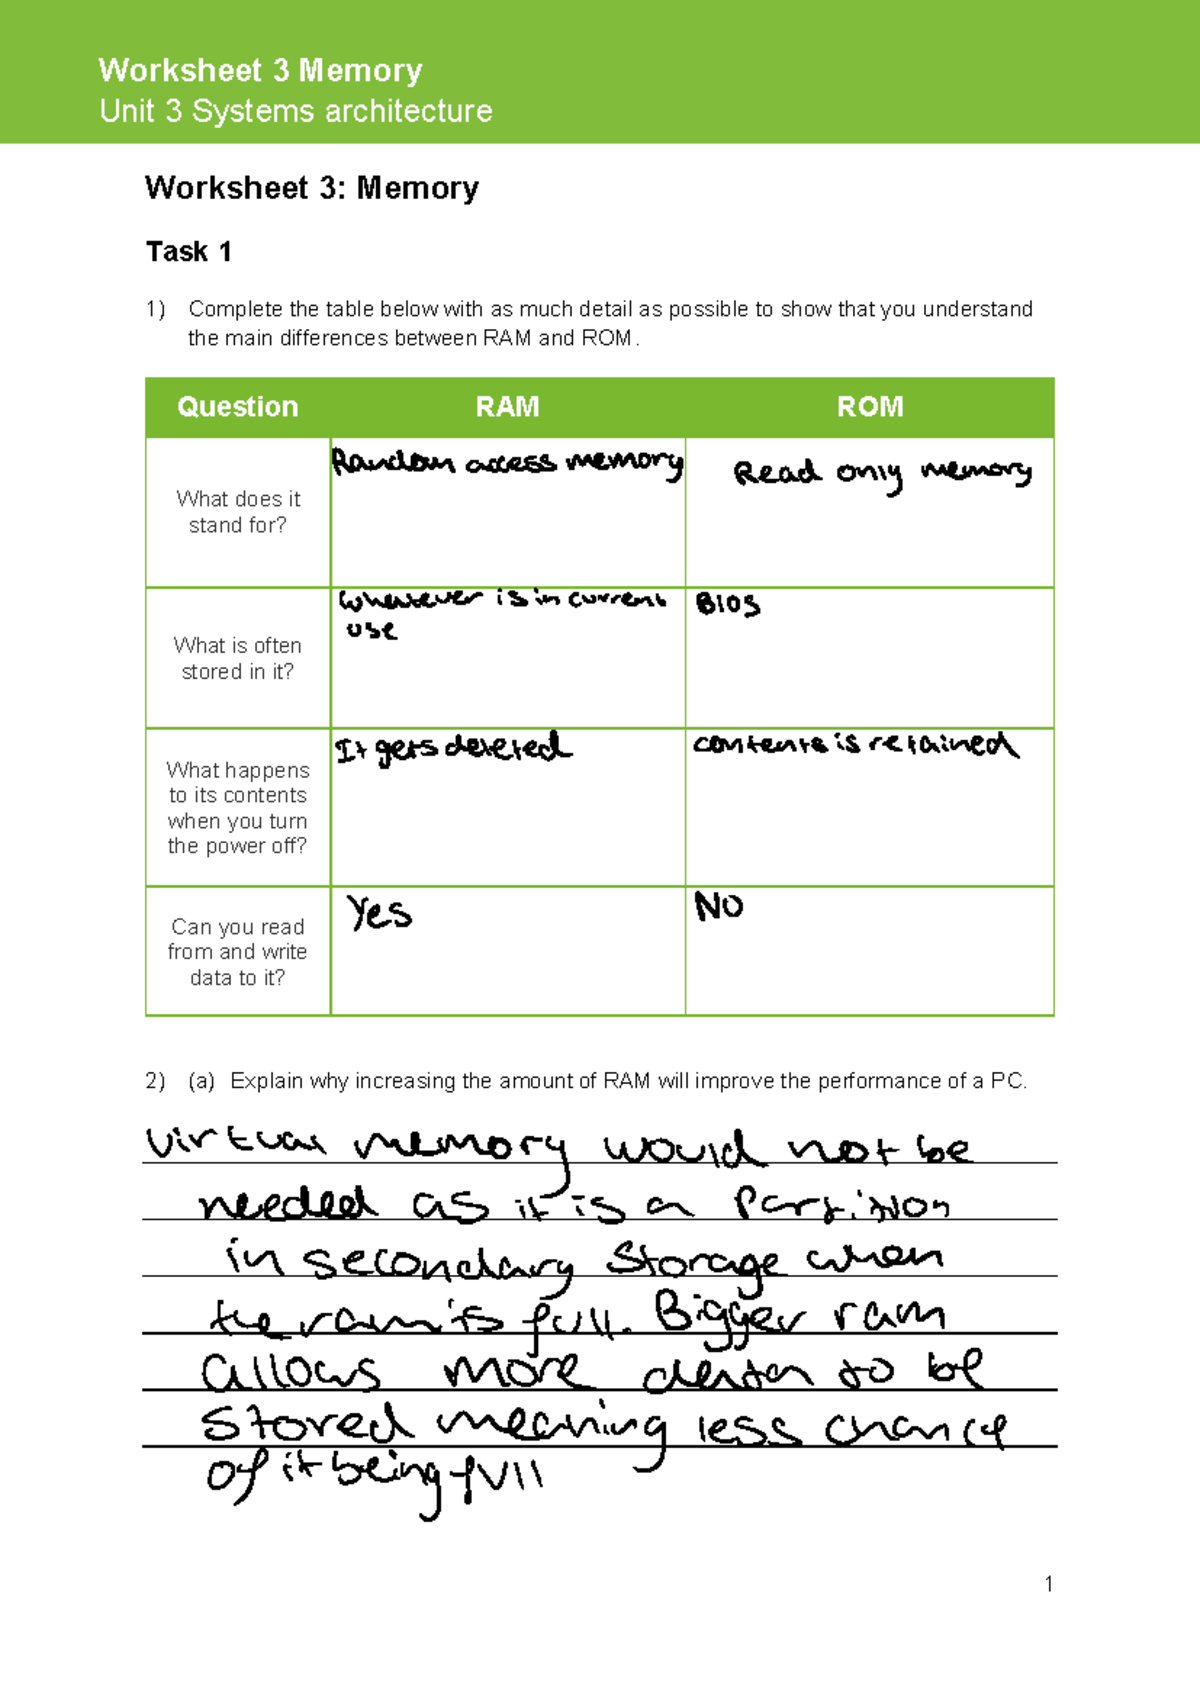 Worksheet 3 Memory
Unit 3 Systems architecture
Worksheet 3: Memory
Task 1
1) Complete the table below with as much detail as possible to show that you understand
the main differences between RAM and ROM.
Question RAM ROM
What does it
stand for?
Random access memory
Read only memory
What is often
stored in it?
Whatever is in current
use
BIOS
What happens
to its contents
when you turn
the power off?
It gets deleted
contents is retained
Can you read
from and write
data to it?
Yes
NO
2) (a) Explain why increasing the amount of RAM will improve the performance of a PC.
virtual memory would not be
needed as it is a partition
in secondary storage when
the ram is full. Bigger ram
allows more to be
stored meaning less chance
of it being full
1